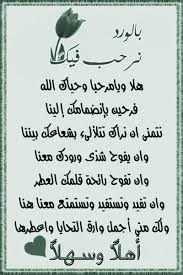 بالورد
نرحب فيك
هلا ويامرحبا وحياك الله
فرحين بإنضمامك إلينا
نتمنى ان نراك تتلألىء بشعاعك بيننا
وان يفوح شذى ورودك معنا
وان تفوح رائحة قلمك العطر
وان تفيد وتستفيد وتستمتع معنا هنا
ولك مني أجمل وارق التحايا واعطرها
أهلا وسهلا